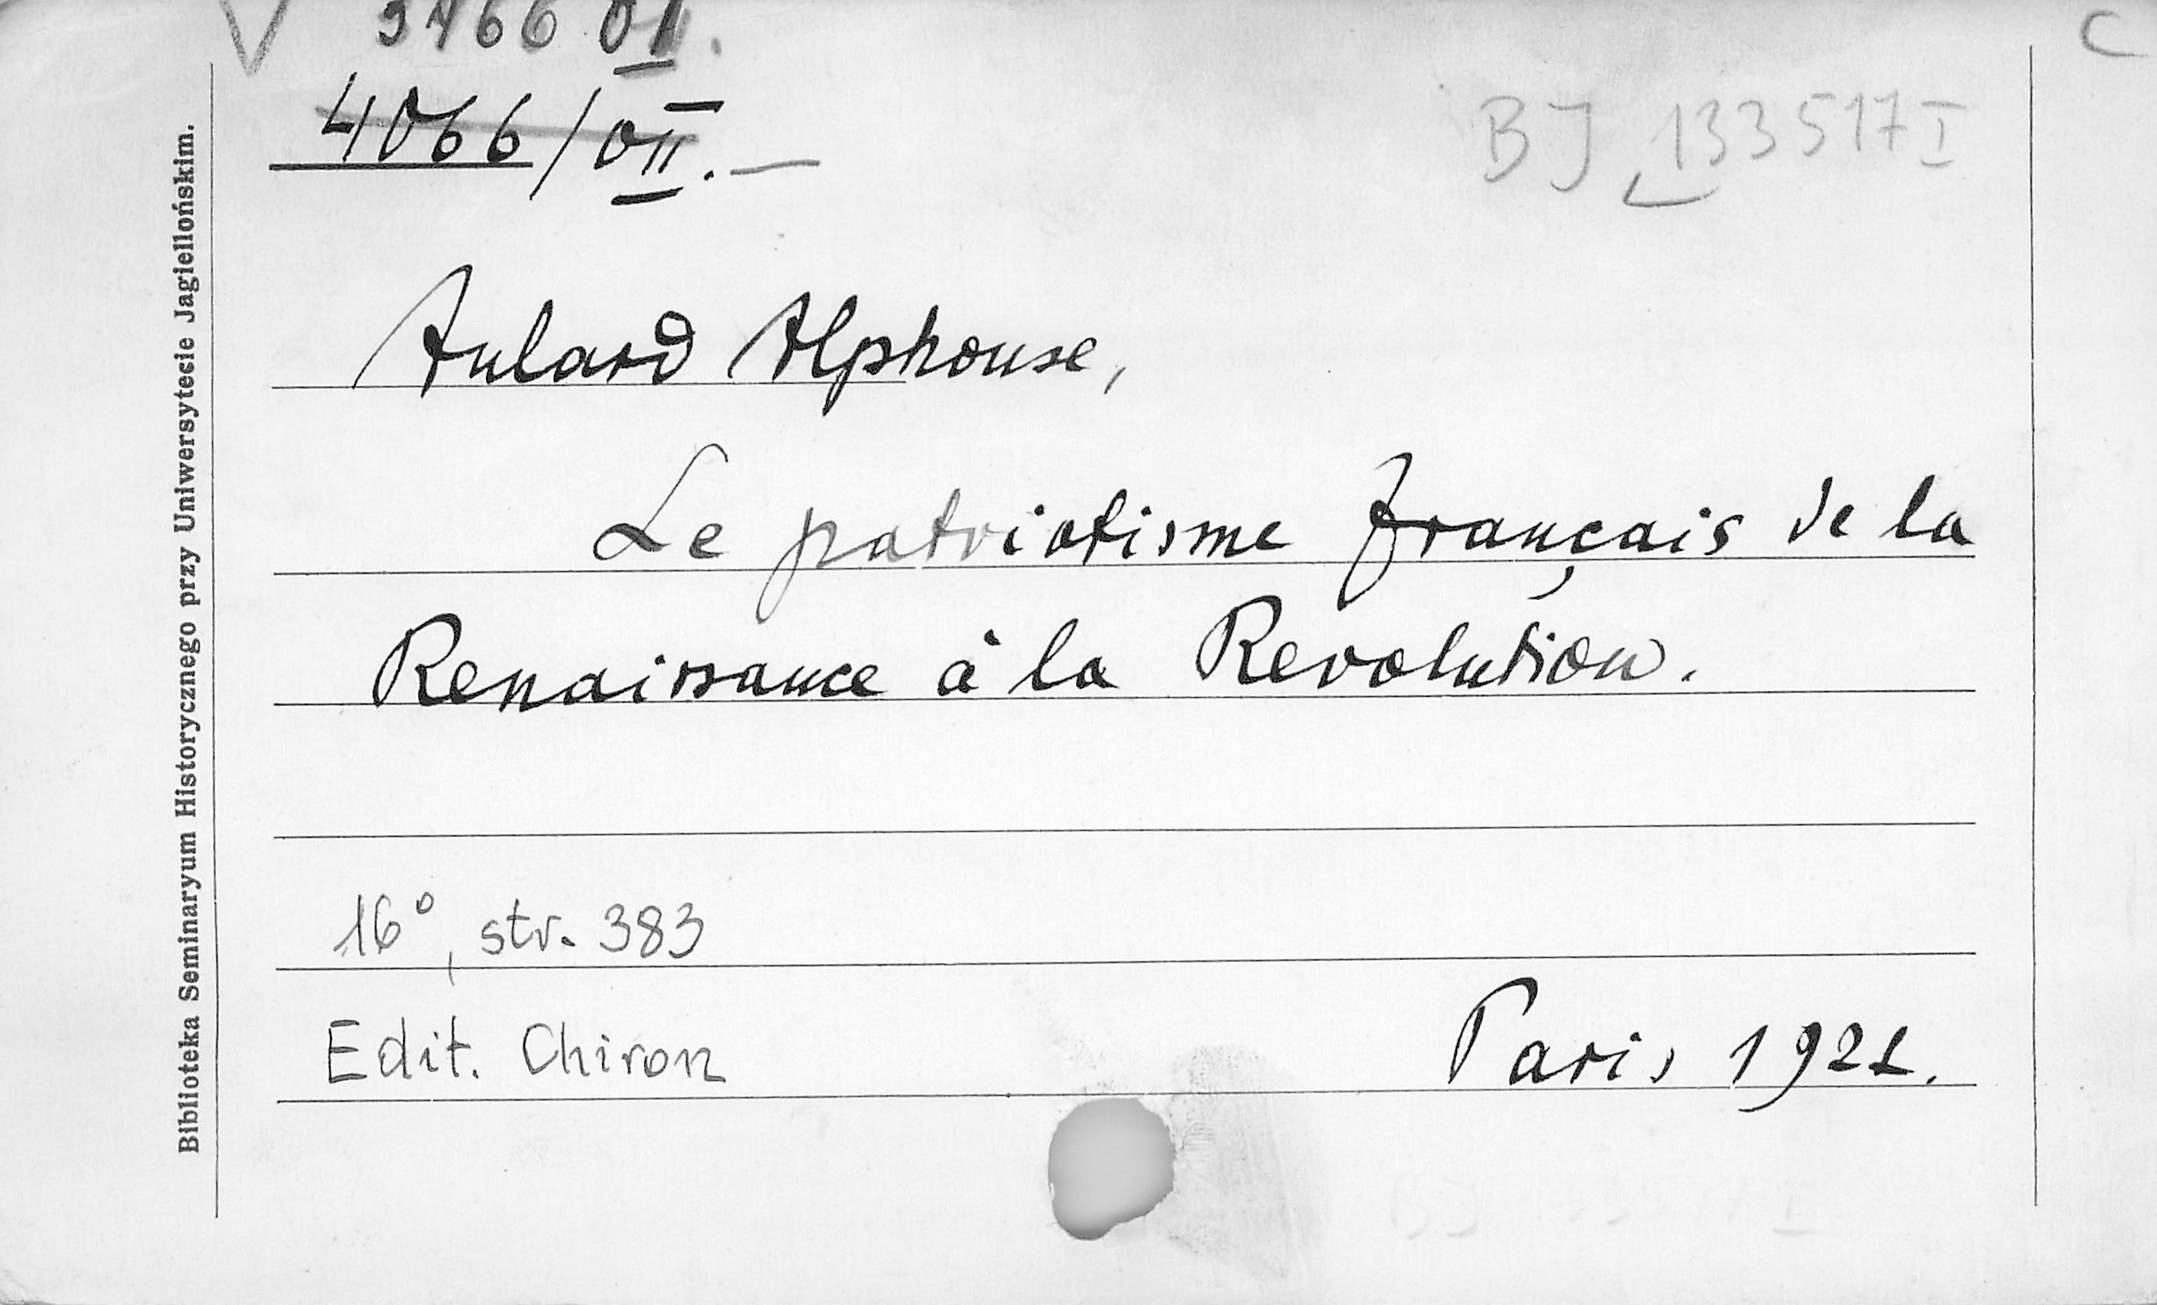 V 3766 OI.
C
4066/OII.—
BJ 133517 I
Aulard Alphonse,
Le patriotisme français de la
Renaissance à la Revolution.
16°, str. 383
Edit. Chiron
Paris 1921.
Biblioteka Seminaryum Historycznego przy Uniwersytecie Jagiellońskim.